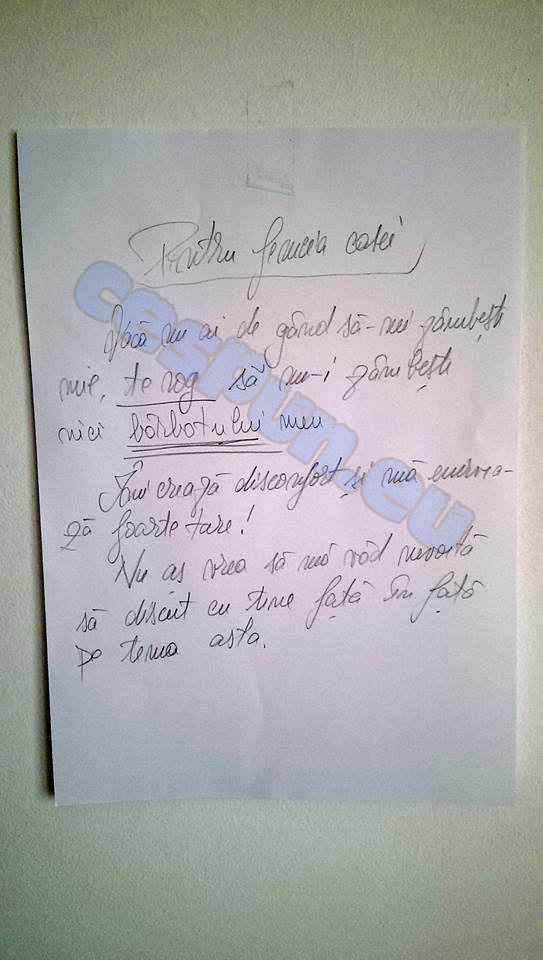 Pentru femeia casei
Dacă nu ai de gând să-mi zâmbești
mie, te rog să nu-i zâmbești
nici bărbatului meu
Îmi crează disconfort și mă enervea-
ză foarte tare!
Nu aș vrea să mă văd nevoită
să discut cu tine față în față
pe tema asta.
cespun.eu